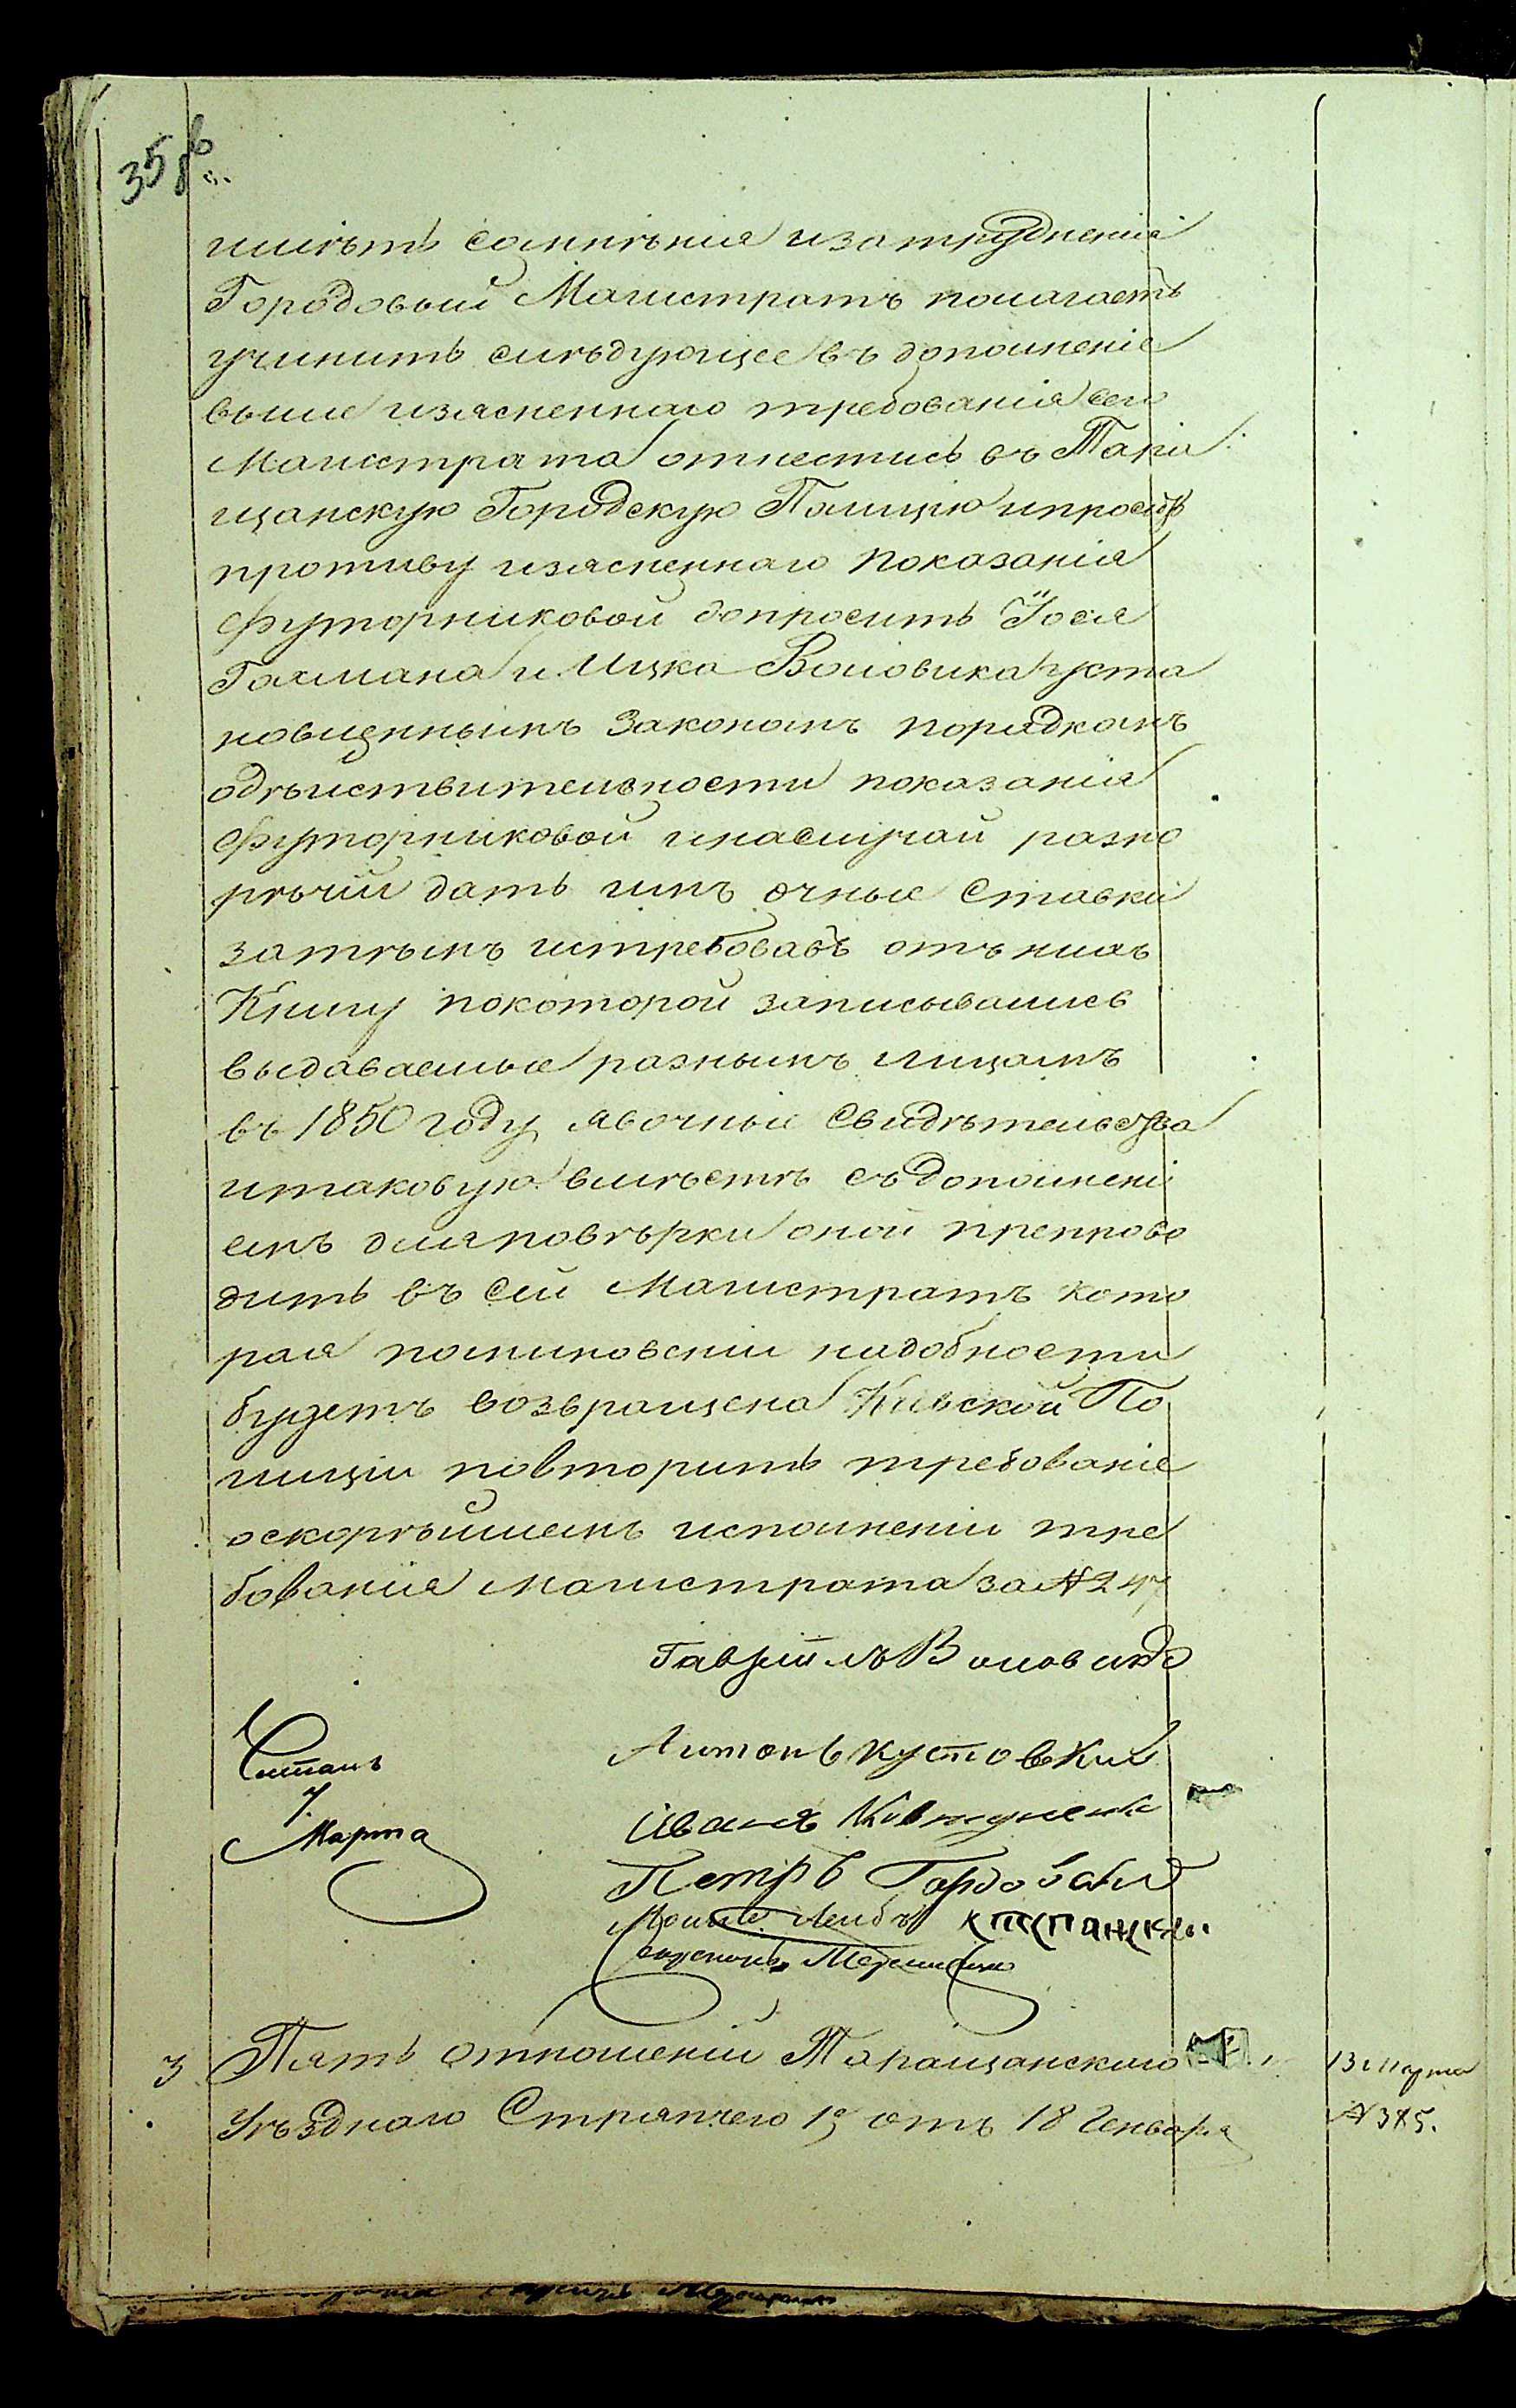 35 об.
имѣть сомнѣнія и затрудненія
Городовый Магистратъ полагаетъ
учинить слѣдующее въ дополненіе
выше изясненнаго требованія сего
Магистрата отнестись въ Тара
щанскую Городскую Полицію и просить
противу изясненнаго показанія
Футорниковой допросить Іося
Гахмана и Ицка Воловика уста
новленнымъ Закономъ порядкомъ
о дѣйствительности показанія
Футорниковой и на случай разно
рѣчій дать имъ очные Ставки
затѣмъ истребовавъ отъ нихъ
Книгу по которой записывались
выдаваемые разнымъ лицамъ
въ 1850 году явочныи Свидѣтельства
и таковую вмѣстѣ съ дополнені
емъ для повѣрки оной препрово
дить въ сей Магистратъ кото
рая по миновеніи надобности
будетъ возвращена Кіевской По
лиціи повторить требованіе
о скорѣйшемъ исполненіи тре
бованія Магистрата за № 247
Гавріилъ Воловикъ
Читалъ
7
Марта
Антонъ Кустовскій
Иванъ Ковтуненко
Петръ Гордовскій
Мошко Лейбъ
3 Пять отношеній Таращанскаго
Уѣзднаго Стряпчего 1е отъ 18 Генваря
13 Марта
№ 385.